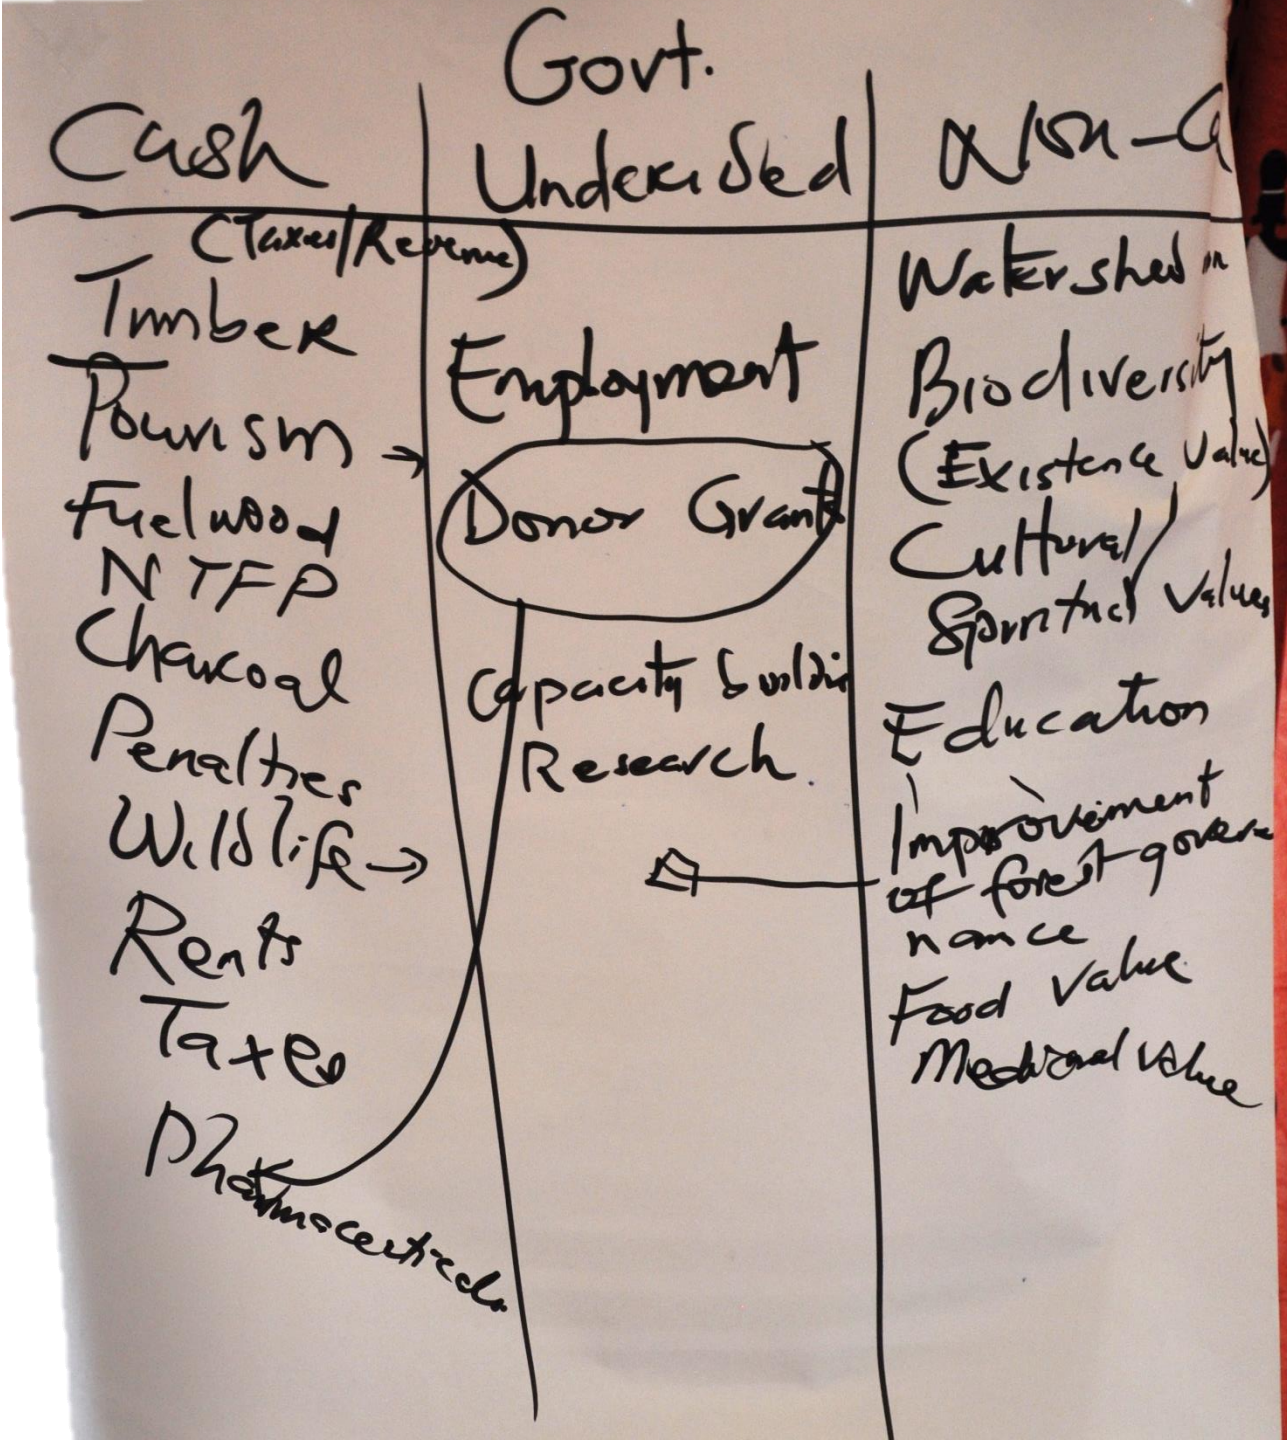 Govt.
Cash
Undecided
Non-C
(Taxes/Revenue)
Timber
Tourism →
Fuelwood
NTFP
Charcoal
Penalties
Wildlife →
Rents
Taxes
Pharmaceuticals
Employment
Donor Grants
Capacity buildin
Research.
Watershed
Biodiversity
(Existence Value)
Cultural/
Spiritual Values
Education
Improvement
of forest gover
nance
Food Value
Medicinal Value